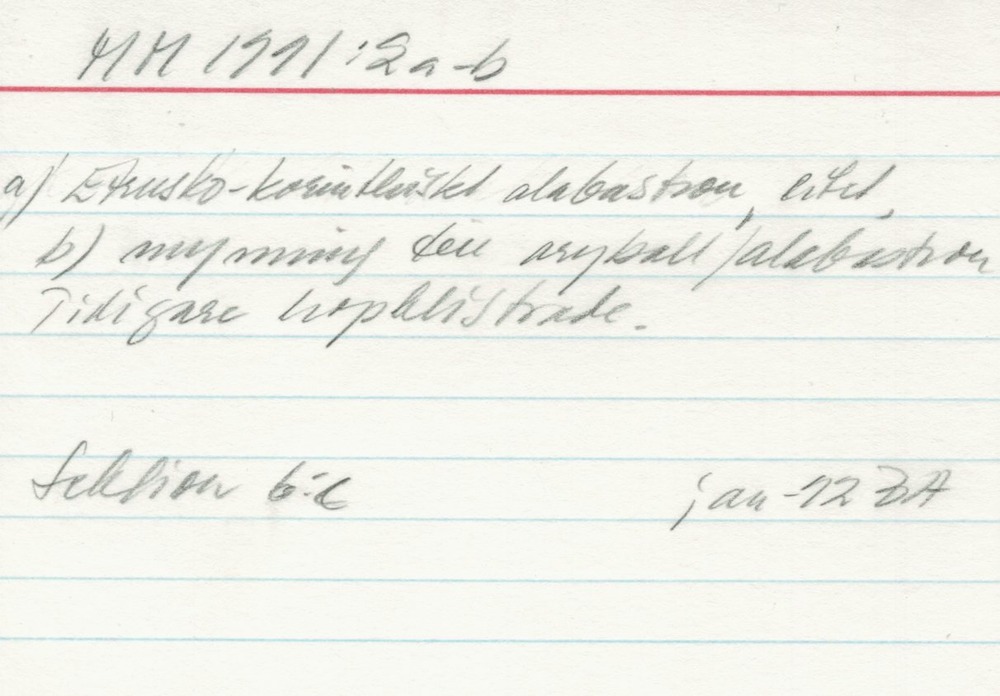 MM 1991:2a-b
a) Etrusko-korintiskt alabastron, litet,
b) mynning till aryball/alabastron
Tidigare hopklistrade.
Sektion 6:
jan -92